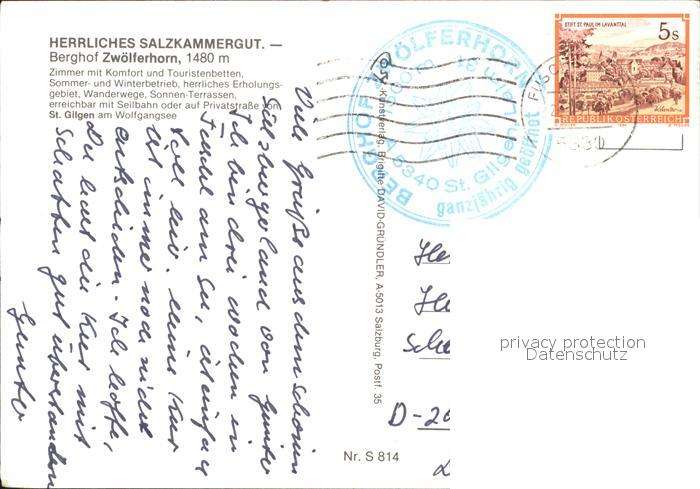 HERRLICHES SALZKAMMERGUT. —
Berghof Zwölferhorn, 1480 m
Zimmer mit Komfort und Touristenbetten,
Sommer- und Winterbetrieb, herrliches Erholungs-
gebiet, Wanderwege, Sonnen-Terrassen,
erreichbar mit Seilbahn oder auf Privatstraße von
St. Gilgen am Wolfgangsee
Viele Grüße aus dem schönen
Salzburgerland von Gunter
Ich bin drei Wochen in
Fuschl am See, es einfach
toll hier. meine Kur
ist immer noch nicht
entschieden. Ich hoffe,
Du hast die Kur mit
Schatten gut überstanden
Gunter
Kunstverlag, Brigitte DAVID-GRÜNDLER, A-5013 Salzburg, Postf. 35
BERGHOF ZWÖLFERHORN
A 5340 St. Gilgen
ganzjährig geöffnet
FUSCHL
5330
STIFT ST. PAUL IM LAVANTTAL
5 S
REPUBLIK ÖSTERREICH
D-20
Nr. S 814
privacy protection
Datenschutz